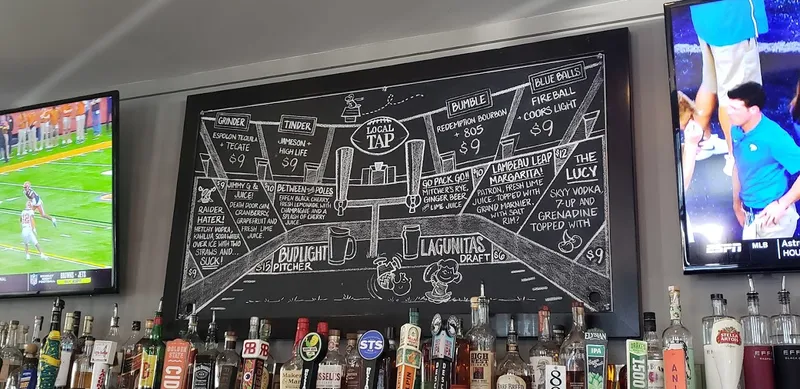 GRINDER
ESPOLON TEQUILA
+ TECATE
$9
TINDER
JAMESON +
HIGH LIFE
$9
LOCAL
TAP
BUMBLE
REDEMPTION BOURBON
+ 805
$9
BLUE BALLS
FIREBALL
+ COORS LIGHT
$9
RAIDER
HATER!
KAHLUA, SODA WATER
OVER ICE WITH TWO
STRAWS AND...
SUCK!
$9
$9
JIMMY G &
JUICE!
DEATH DOOR GIN,
CRANBERRY,
GRAPEFRUIT AND
FRESH LIME
JUICE.
$10
BETWEEN THE POLES
EFFEN BLACK CHERRY,
FRESH LEMONADE WITH
CHAMPAGNE AND A
SPLASH OF CHERRY
JUICE
GO PACK GO!!
MITCHER'S RYE,
GINGER BEER
AND LIME JUICE
$10
LAMBEAU LEAP
MARGARITA!
PATRON, FRESH LIME
JUICE, TOPPED WITH
GRAND MARNIER
WITH SALT
RIM!
$12
THE
LUCY
SKYY VODKA,
7-UP AND
GRENADINE
TOPPED WITH
$9
BUDLIGHT
PITCHER
$15
LAGUNITAS
DRAFT
$6
BROWNS
JETS
ESPN
MLB
HOU
STS
CID
ELYSIAN
IPA
STELLA
ARTOIS
EFFEN